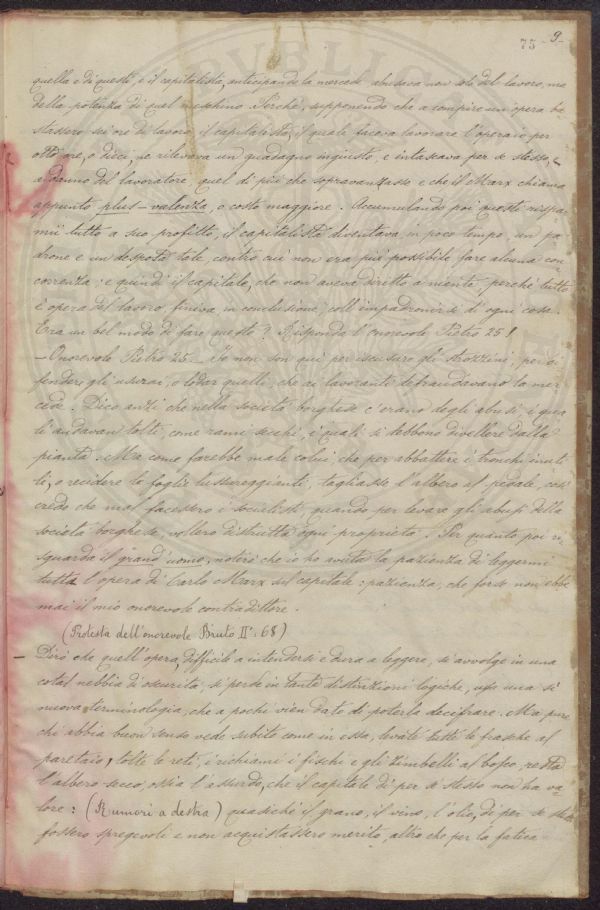 73 - 9 -
quella e di questi, e il capitalista, anticipando la mercede abusava non solo del lavoro, ma
della potenza di quel meschino. Perché, supponendo che a compire un'opera ba
stassero sei ore di lavoro, il capitalista, il quale faceva lavorare l'operaio per
otto ore, o dieci, ne rilevava un guadagno ingiusto, e intascava per se stesso, e
a danno del lavoratore quel di più che sopravanzasse e che il Marx chiama
appunto plus-valenza, o costo maggiore. Accumulando poi questi rispar
mii tutto a suo profitto, il capitalista diventava in poco tempo un pa
drone e un despota tale contro cui non era più possibile fare alcuna con
correnza: e quindi il capitale, che non aveva diritto a niente, perché tutto
è opera del lavoro, finiva in conclusione, coll'impadronirsi di ogni cosa.
Era un bel modo di fare questo? Risponda l'Onorevole Pietro 25!
- Onorevole Pietro 25 - Io non son qui per iscusare gli strozzini, per di
fendere gli usurai, o lodar quelli che ai lavoranti defraudavano la mer
cede. Dico anzi che nella società borghese c'erano degli abusi, i qua
li andavan tolti, come rami secchi, i quali si debbono divellere dalla
pianta. Ma come farebbe male colui che per abbattere i tronchi inuti
li, o recidere le foglie lussureggianti, tagliasse l'albero al pedale, così
credo che mal facessero i socialisti, quando per levare gli abusi della
società borghese, vollero distrutta ogni proprietà. Per quanto poi ri
sguarda il grand'uomo, noterò che io ho avuta la pazienza di leggermi
tutta l'opera di Carlo Marx sul capitale: pazienza, che forse non ebbe
mai il mio onorevole contradittore.
(Protesta dell'onorevole Bruto IIº: 68)
- Dirò che quell'opera, difficile a intendersi e dura a leggere, si avvolge in una
cotal nebbia di oscurità, si perde in tante distinzioni logiche, usa una sì
nuova terminologia, che a pochi vien dato di poterla decifrare. Ma pure
chi abbia buon senso vede subito come in essa, levate tutte le frasche al
paretaio, tolte le reti, i richiami i fischi e gli zimbelli al bosco, resta
l'albero secco, ossia l'assurdo, che il capitale di per se stesso non ha va
lore: (Rumori a destra) quasiché il grano, il vino, l'olio, di per se stessi
fossero spregevoli e non acquistassero merito, altro che per la fatica